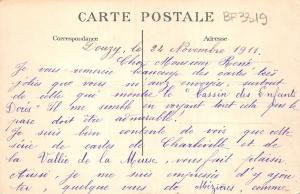 CARTE POSTALE
BF3319
Correspondance
Douzy, le 24 Novembre 1911.
Cher Monsieur René
Je vous remercie beaucoup des cartes très
jolies que vous m'avez envoyées, surtout de
celle que montre le "Bassin des Enfants
Dorés" Il me semble en voyant tout cela que le
parc doit être admirable!
Je suis bien contente de vois que cette
série de cartes de Charleville et de
la Vallée de la Meuse, vous fait plaisir.
Aussi je me suis empressée d'y ajou
ter, quelques vues de Mézières, comme